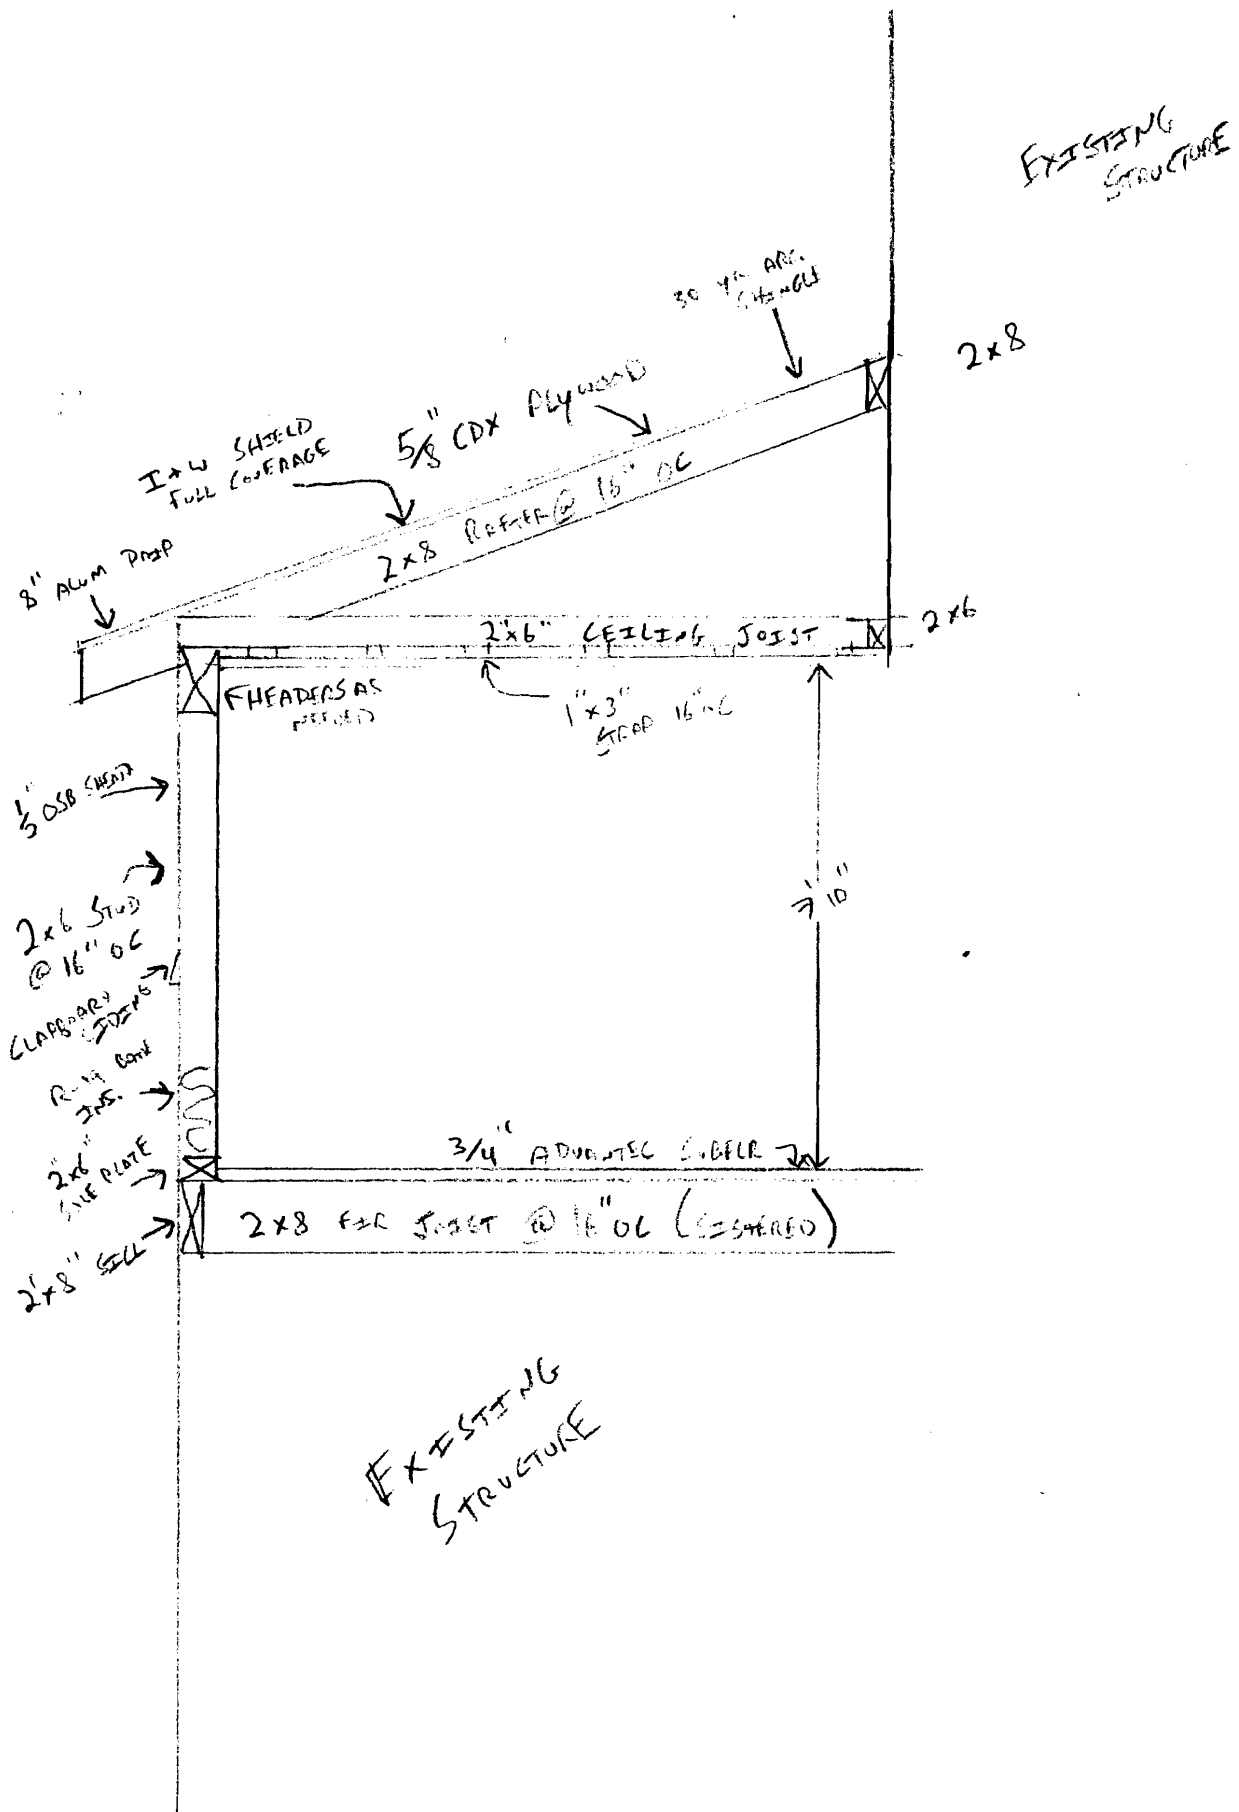 EXISTING
STRUCTURE
30 YR ARC.
SHINGLE
2x8
5/8" CDX PLYWOOD
I+W SHIELD
FULL COVERAGE
2x8 RAFTER @ 16" OC
8" ALUM DRIP
2"x6" CEILING JOIST
2x6
HEADERS AS
NEEDED
1"x3"
STRAP 16" OC
OSB
7'10"
2x6 STUD
@ 16" OC
CLAPBOARD
SIDING
R-19 BATT
INS.
2"x6"
SILL PLATE
3/4" ADVANTEC SUBFLR
2"x8" SILL
2x8 FIR JOIST @ 16" OC (SISTERED)
EXISTING
STRUCTURE